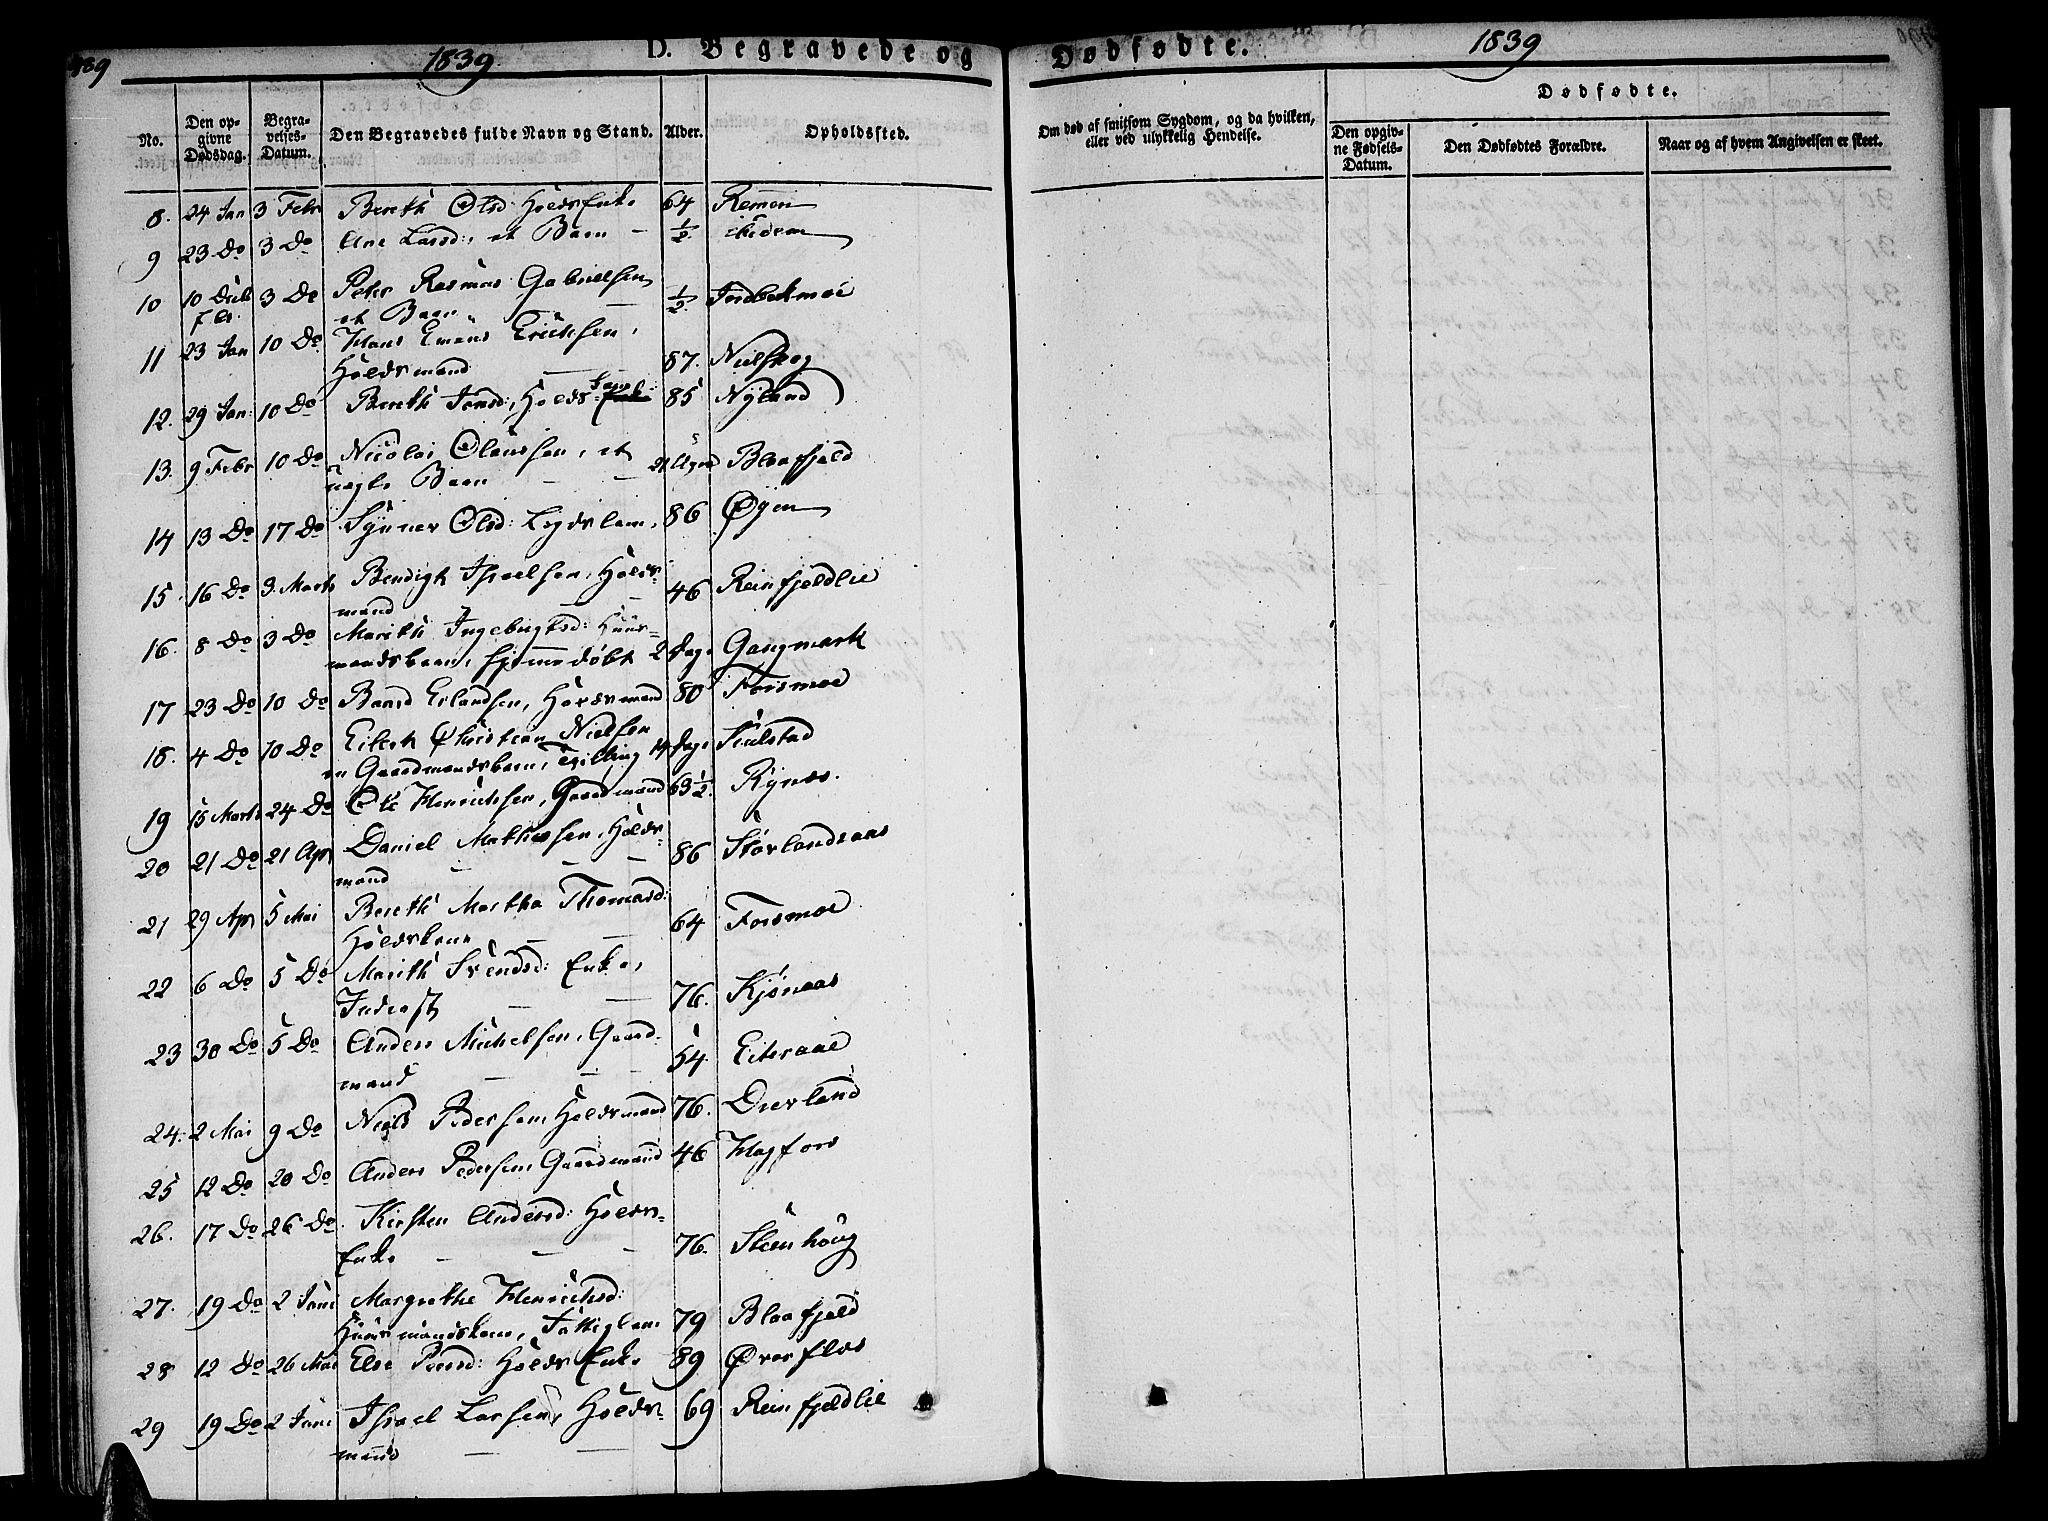 489
1839
D. Begravede og
Dødfødte.
1839
No.
Den opgivne Dødsdag.
Begravelses-Datum.
Den Begravedes fulde Navn og Stand.
Alder.
Opholdssted.
Om død af smitsom Sygdom, og da hvilken,
eller ved ulykkelig Hendelse.
Dødfødte.
Den opgivne Fødsels-Datum.
Den Dødfødtes Forældre.
Naar og af hvem Angivelsen er skeet.
8. 24 Jan 3 Febr Bereth Olsd: Holds Enke 64 Remen
9 23 Do 3 Do Ane Larsd: et Barn - ½ ibidem
10 10 3 Do Peter Rasmus Gabrielsen
et Barn ½
11 23 Jan 10 Do Hans Eriksen,
Holdsmand 87. Nielskog
12. 29 Jan: 10 Do Bereth Jonsd:, Holds 85 Nyland
13. 9 Febr 10 Do Nicolai Olaussen, et
Barn 21 Blaafjeld
14 13 Do 17 Do Olsd: Lægdslem, 86 Øyen
15 16 Do 3 Marts Bendigt Israelsen, Holds-
mand 46 Reinfjeldlie
16. 8 Do 3 Do Marith Ingebrigtsd: Huus-
mandsbarn, hjemmedøbt 2 Dage Gangmark
17 23 Do 10 Do Baard Erlandsen, Holdsmand 80 Forsmoe
18. 4 Do 10 Do Christian Nielsen
en Gaardmandsbarn, Tvilling 14 Dage
19 15 Marts 24 Do Ole Henrichsen, Gaardmand 63½ Rynes.
20 21 Do 21 Apr Daniel Mathiasen, Holds-
mand 86 Storlandsaas
21 29 Apr 5 Mai Bereth Martha Thomasd:
Holdskone 64 Forsmoe
22 6 Do 5 Do Marith Svendsd: Enke,
Inderst 76. Kjønaas
23 30 Do 5 Do Anders Michelsen, Gaard-
mand 54. Eiteraae
24. 2 Mai 9 Do Niels Pedersen, Holdsmand 76. Drevland
25 12 Do 20 Do Anders Pedersen, Gaardmand 46 Hagfors
26. 17 Do 26 Do Kirsten Andersd: Holds-
Enke 76. Steenhoug
27. 19 Do 2 Juni Margrethe Henrichsd:
Huusmandskone, Fattiglem 79 Blaafjeld
28 12 Do 26 Mai Else Peersd: Holds Enke 89 Øverflos
29 19 Do 2 Juni Israel Larsen, Holds-
mand 69 Reinfjeldlie